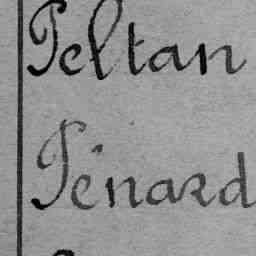 Peltan
Pénard